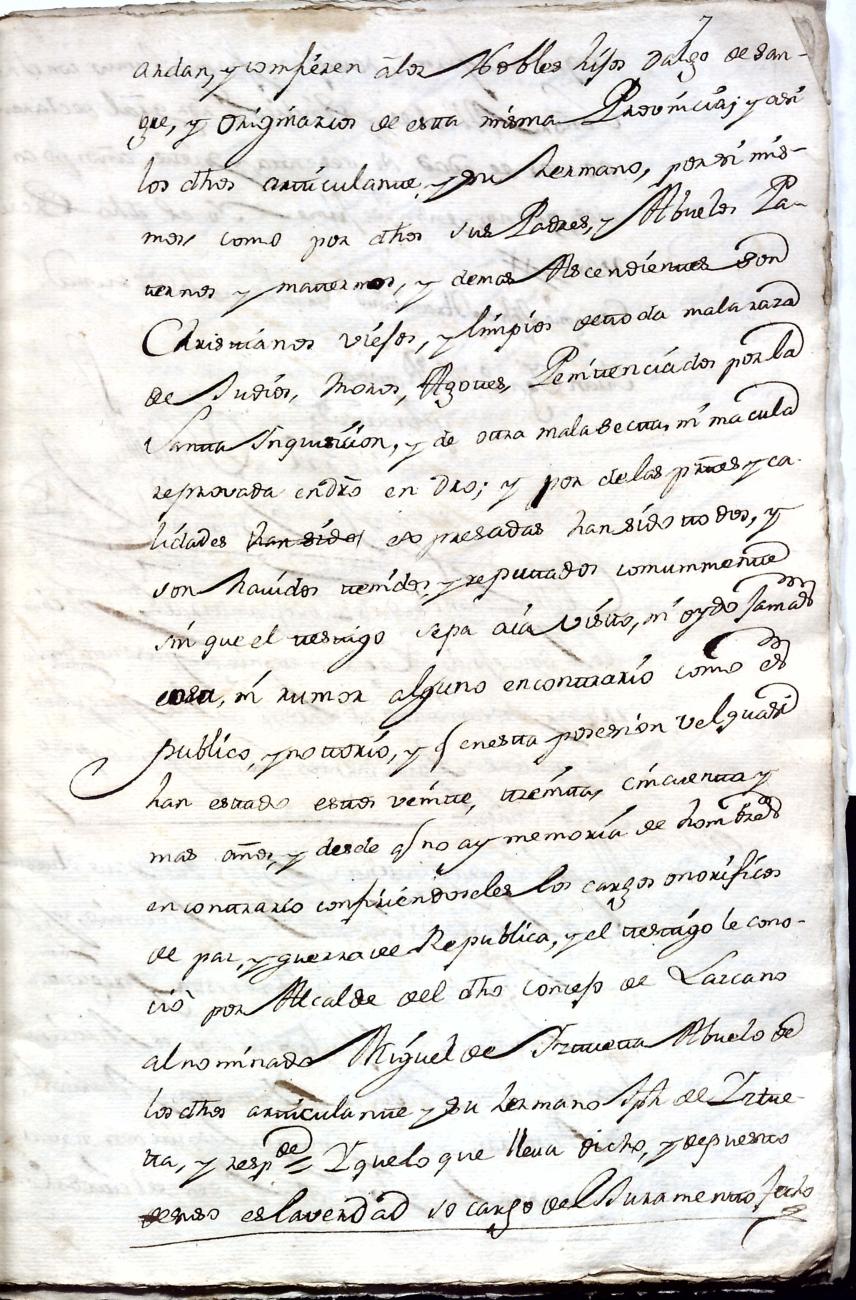 7
ardan, y comfieren a los Nobles hijos dalgo de san-
gre, y originarios de esta misma Provincia; y asi
los dhos articulante, y su hermano, por si mis-
mos, como por dhos sus Padres, y Abuelos Pa-
ternos y maternos, y demas Ascendientes son
Christianos viejos, y limpios de toda mala raza
de Judios, Moros, Agotes, Penitenciados por la
Santa Inquisicion, y de otra mala secta, ni macula
reprovada en dro; y por de las partes y ca-
lidades han sido expresadas han sido todos, y
son havidos tenidos, y reputados comunmente
sin que el testigo sepa aia visto, ni oydo jamas
cosa, ni rumor alguno en contrario como es
publico, y nottorio, y q en esta posesion vel quasi
han estado estos veinte, treinta, cincuenta y
mas años, y desde q no ay memoria de hombres
en contrario confiriendoseles los cargos onorificos
de paz, y guerra de Republica, y el testigo le cono-
ció por Alcalde del dho concejo de Lazcano
al nominado Miguel de Yrtueta Abuelo de
los dhos articulante y su hermano Jph de Yrtue-
ta, y resp.de = Y que lo que lleva dicho, y depuesto
es la verdad so cargo del Juramento fecho